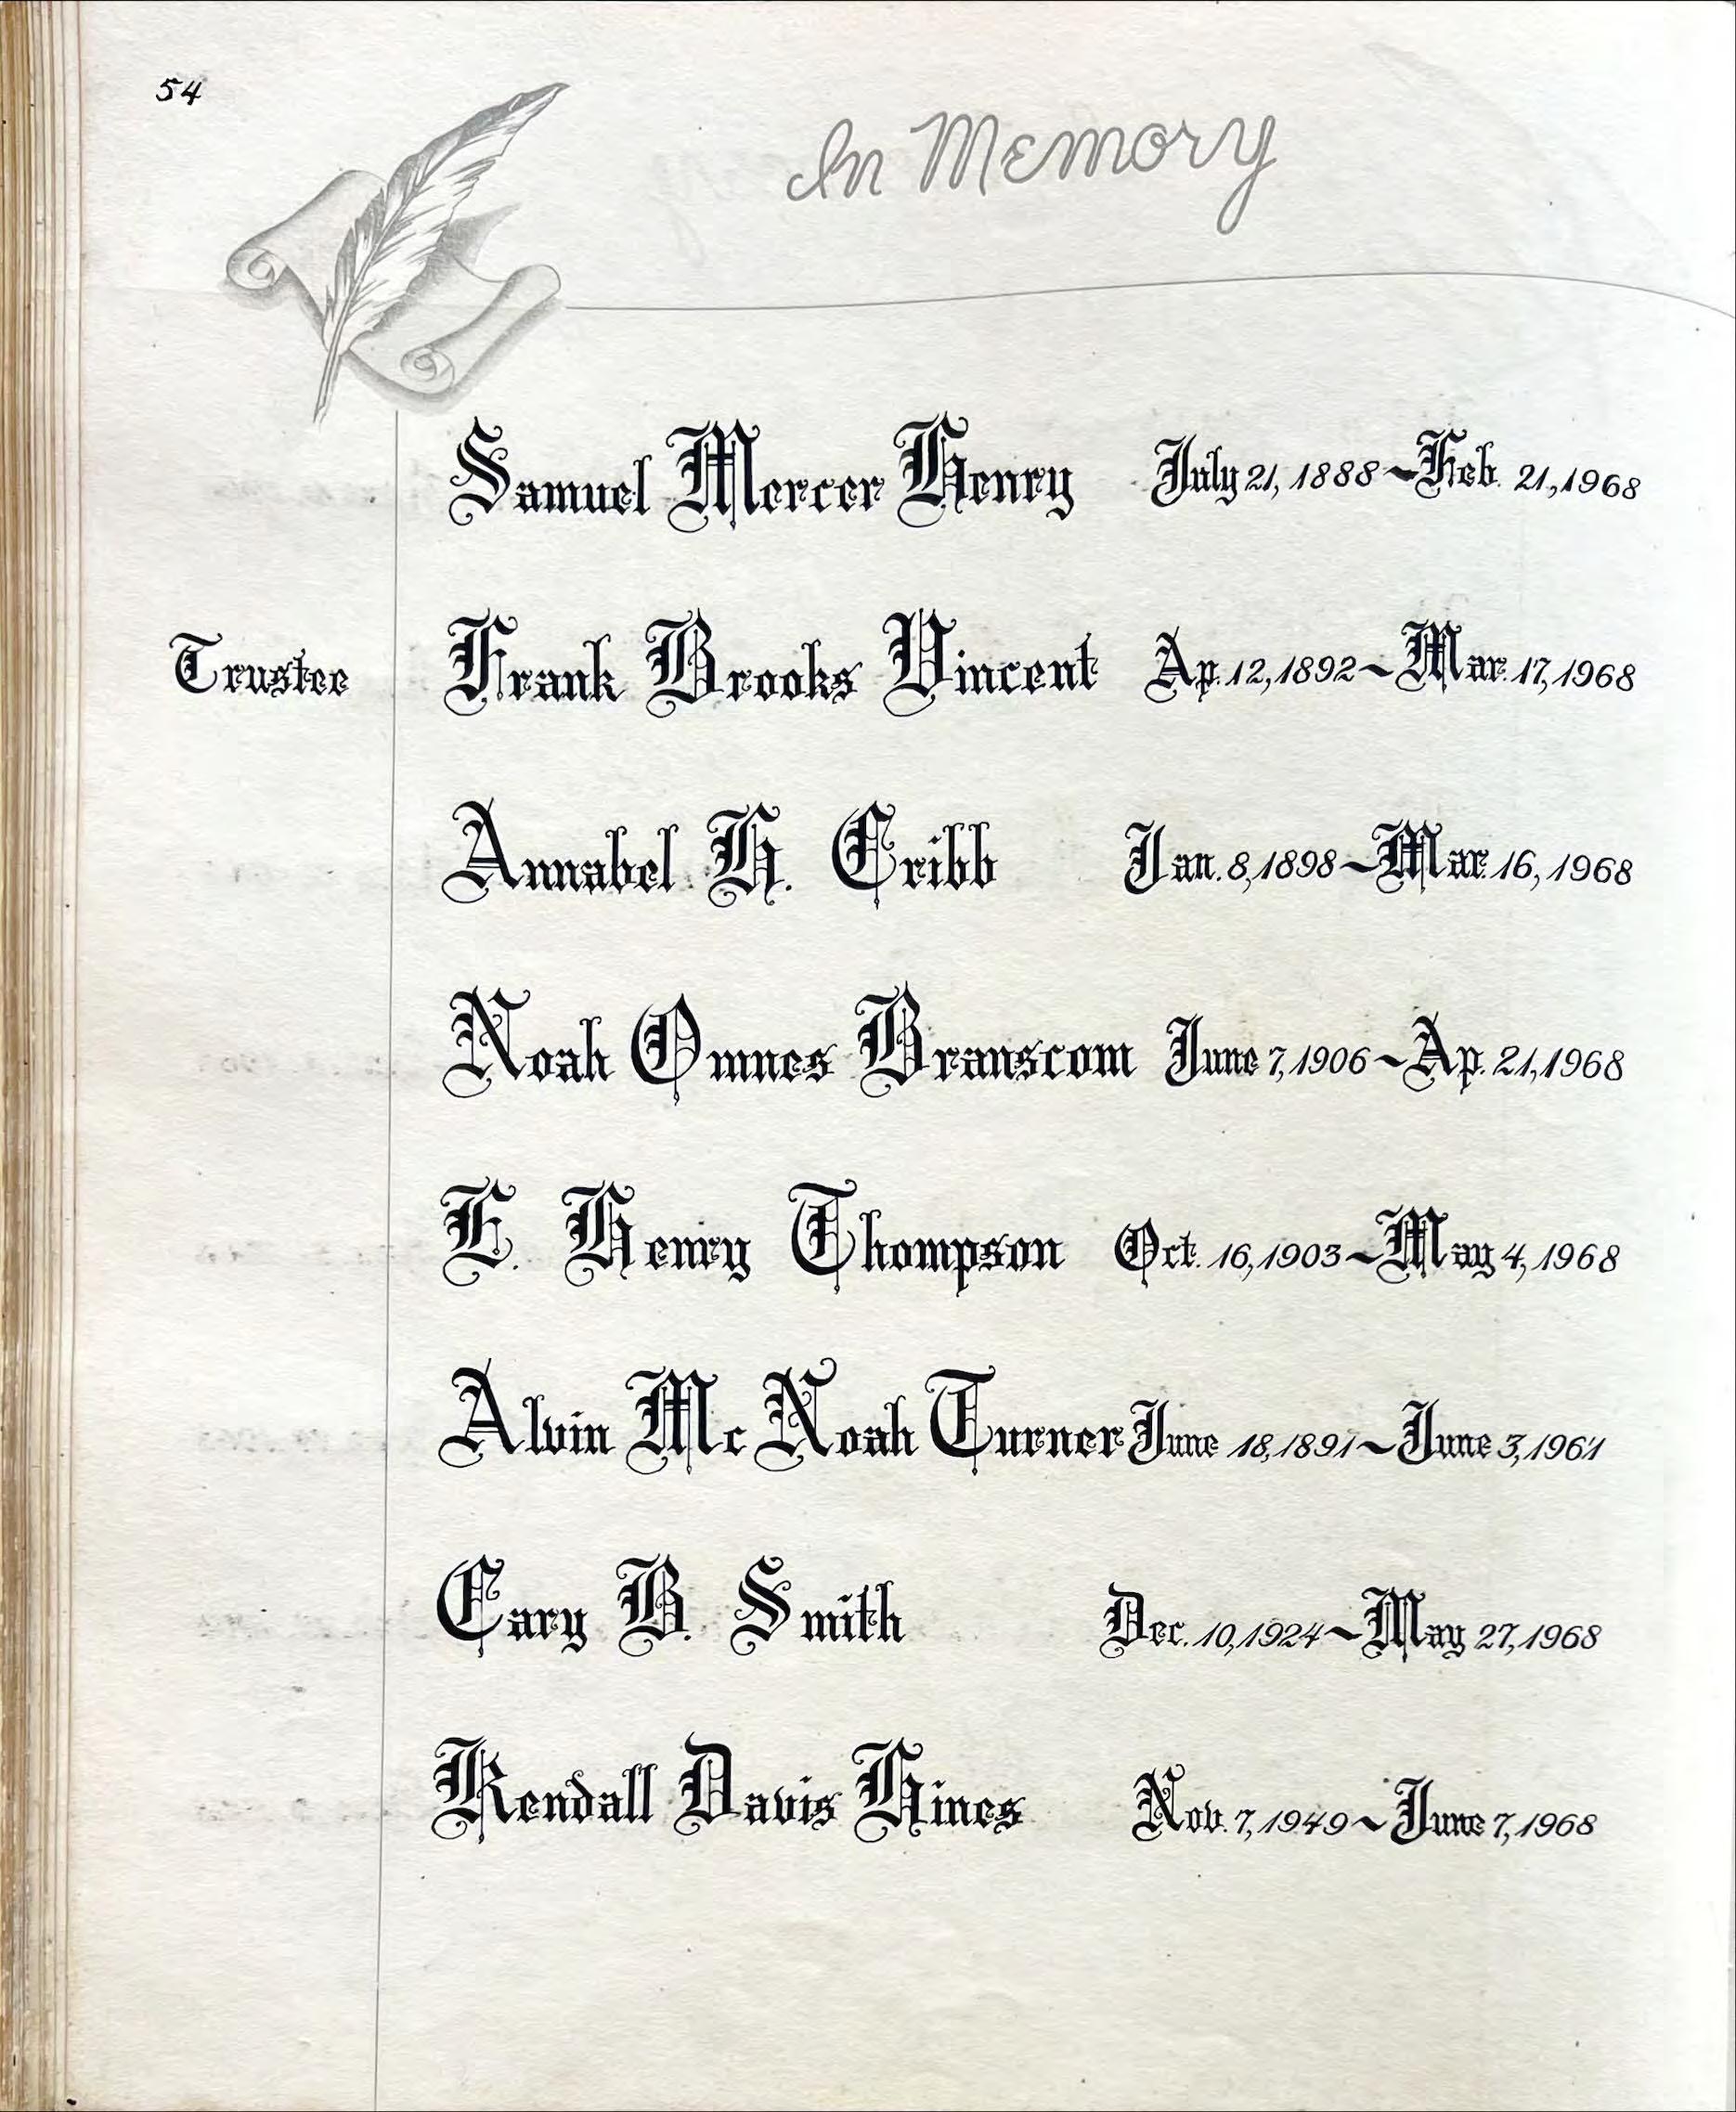 54
In Memory
Samuel Mercer Henry July 21, 1888 ~ Feb. 21, 1968
Trustee Frank Brooks Vincent Ap. 12, 1892 ~ Mar. 17, 1968
Annabel H. Cribb Jan. 8, 1898 ~ Mar. 16, 1968
Noah Omnes Branscom June 7, 1906 ~ Ap. 21, 1968
E. Henry Thompson Oct. 16, 1903 ~ May 4, 1968
Alvin Mc Noah Turner June 18, 1891 ~ June 3, 1961
Cary B. Smith Dec. 10, 1924 ~ May 27, 1968
Kendall Davis Hines Nov. 7, 1949 ~ June 7, 1968